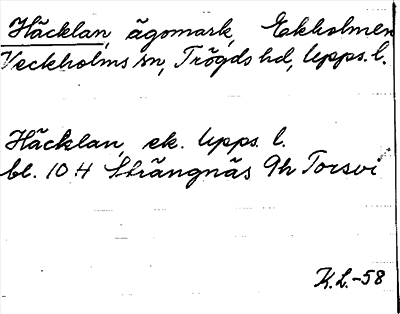 Häcklan, ägomark, Ekholmen
Veckholms sn, Trögds hd, Upps. l.
Häcklan, ek. Upps. l.
bl. 10 H Strängnäs 9h Torsvi
K.L.-58